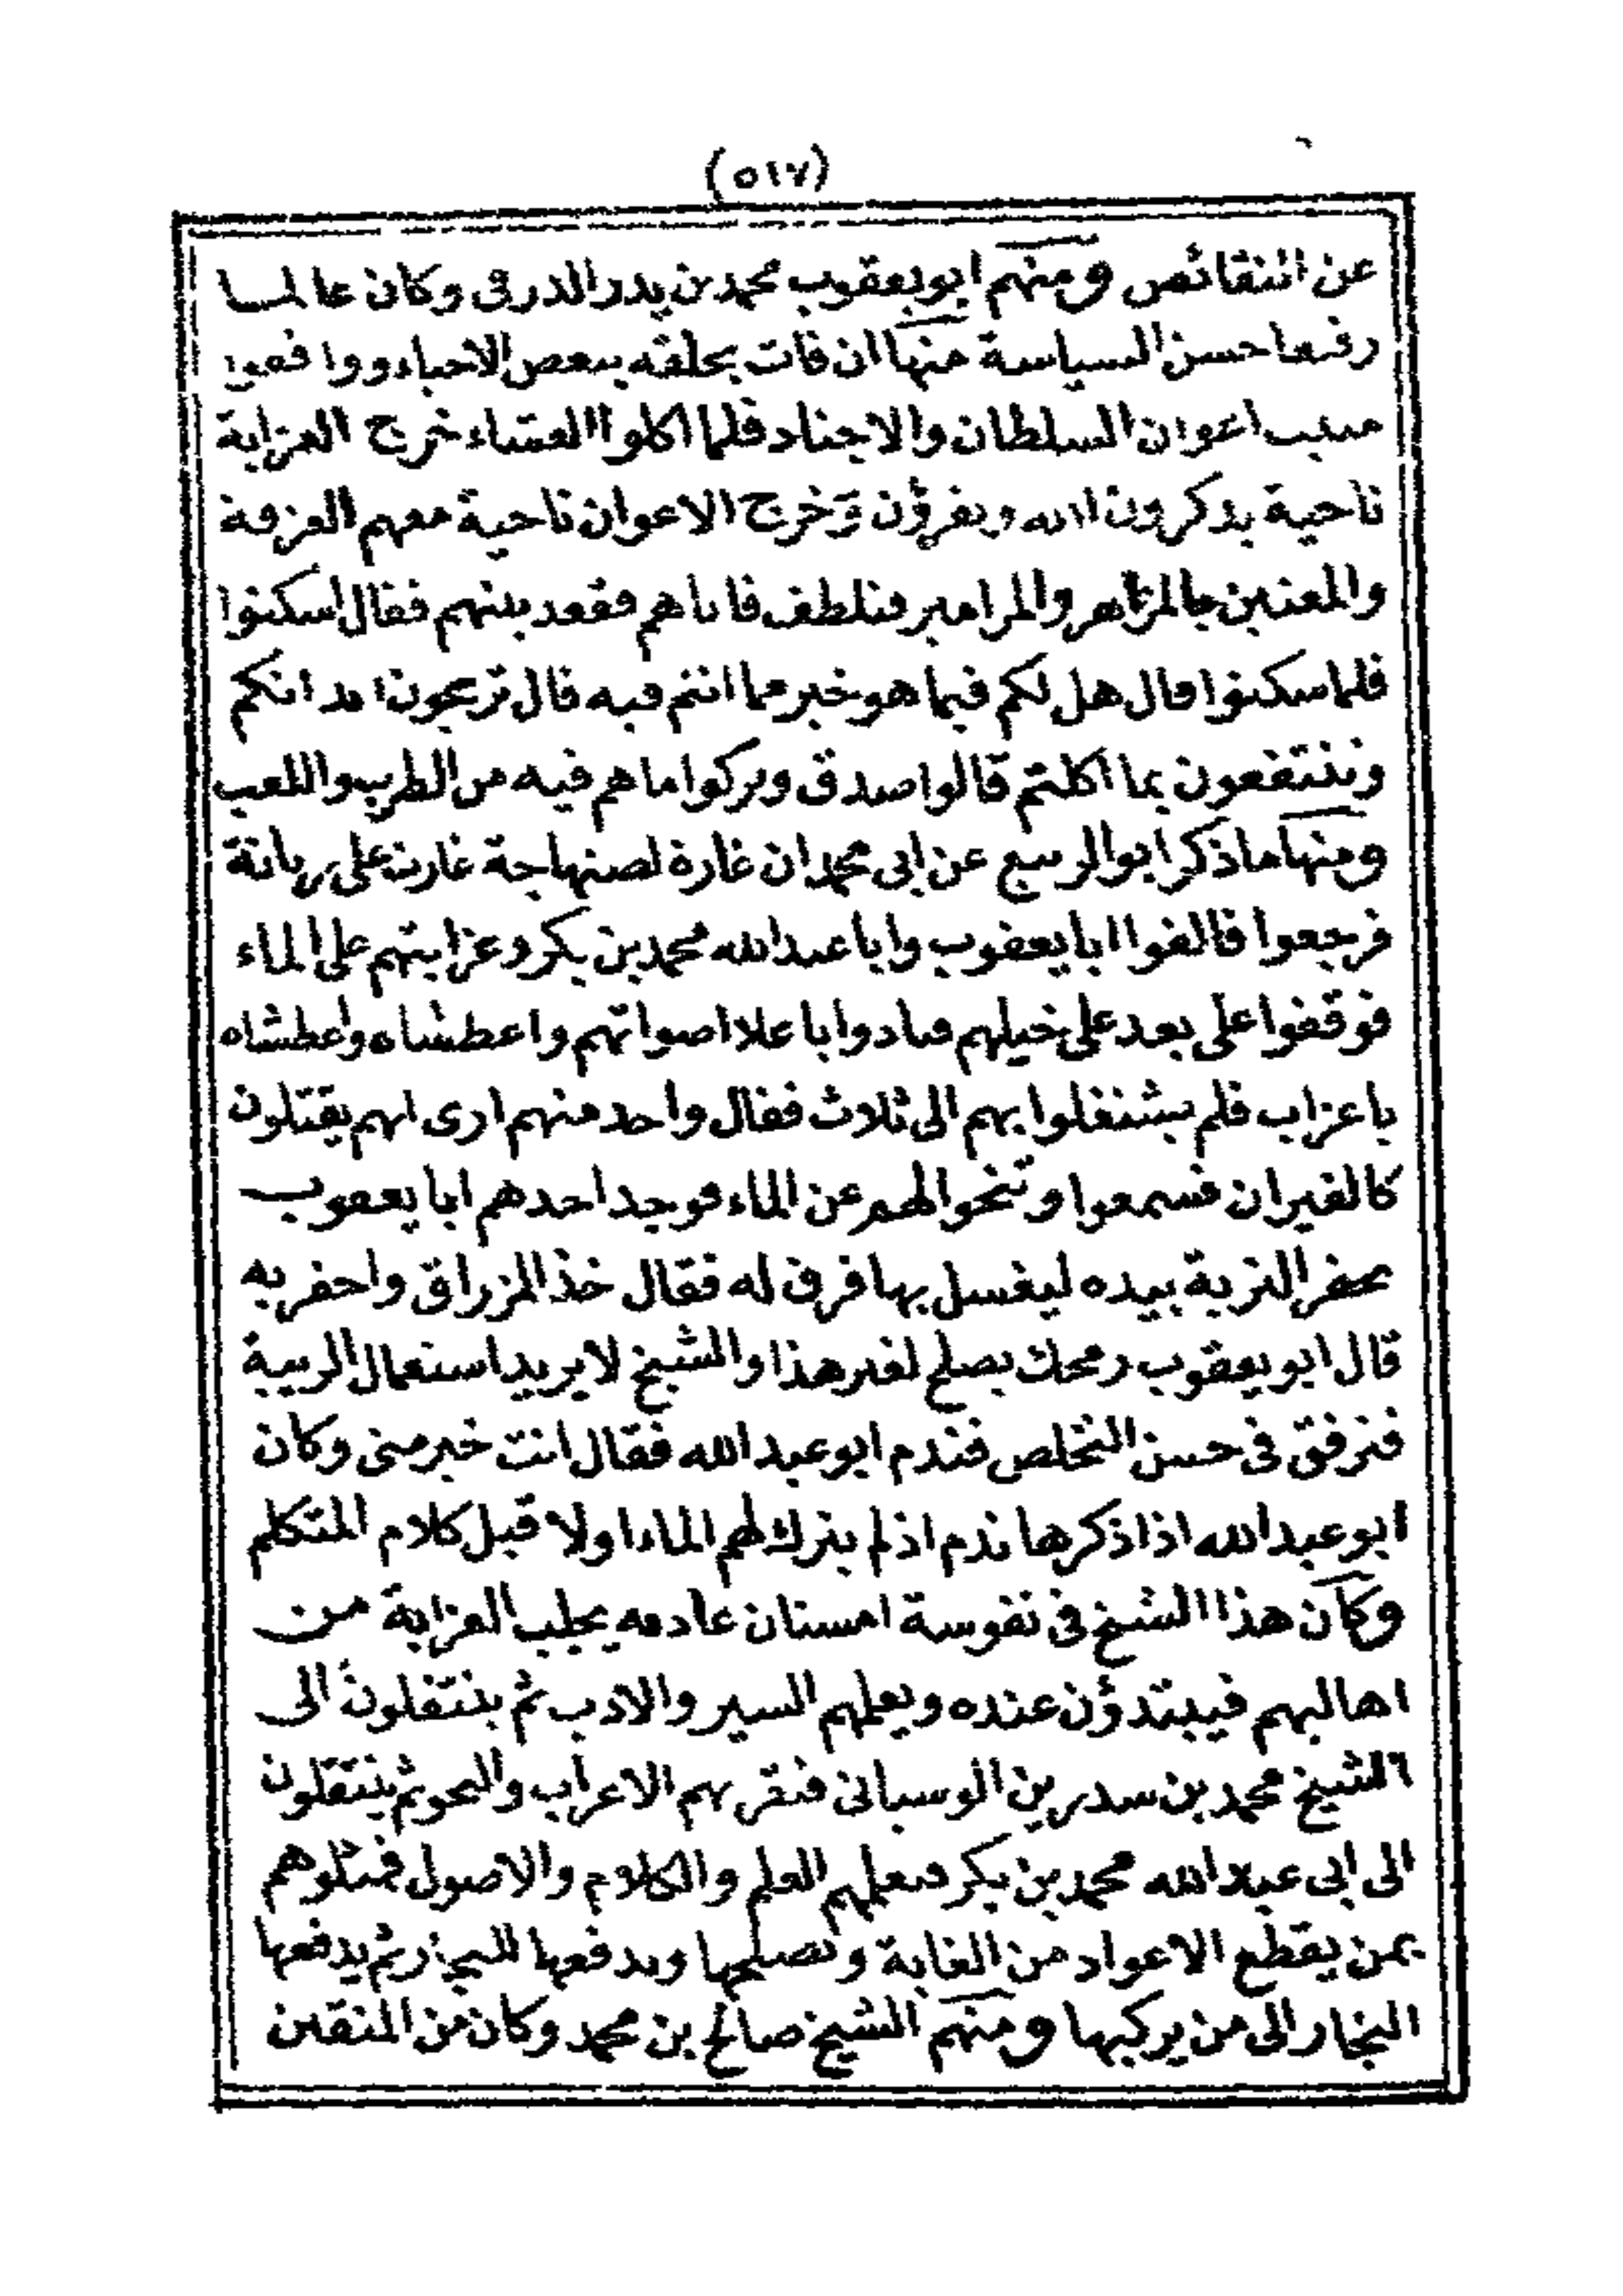 (٥١٧)
عن النقائص ومنهم ابو يعقوب محمد بن يدر الدرفى وكان عالما
رفيعا حسن السياسة منها ان فات بحلقه ببعض الاحياء ووافقوا
مبيت اعوان السلطان والاجناد فلما اكلوا العشاء خرج العزابة
ناحية يذكرون الله ويقرؤن وخرج الاعوان ناحية معهم العزفة
والمغنين بالمزاهر والمزامير فتلطف فاتاهم فقعد بينهم فقال اسكتوا
فلما سكتوا قال هل لكم فيما هو خير مما انتم فيه قال تريحون ابدانكم
وتنتفعون بما اكلتم قالوا صدق وتركوا ما هم فيه من الطرب واللعب
ومنها ما ذكر ابو الربيع عن ابى محمد ان غارة لصنهاجة غارت على
فرجعوا فالفوا ابا يعقوب وابا عبدالله محمد بن بكر وعزابتهم على الماء
فوقفوا على بعد على خيلهم فنادوا باعلا اصواتهم واعطشاه واعطشاه
يا عزاب فلم يشتغلوا بهم الى ثلاث فقال واحد منهم ارى انهم يقتلون
كالفيران فسمعوا وتنحوا لهم عن الماء فوجد احدهم ابا يعقوب
يحفر التربة بيده ليغسل بها فرق له فقال خذ المزراق واحفر به
قال ابو يعقوب رمحك يصلح لغير هذا والشيخ لا يريد استعمال الريبة
فترفق فى حسن التخلص فندم ابو عبدالله فقال انت خير منى وكان
ابو عبدالله اذا ذكرها ندم اذ لم يترك لهم الماء اولا قبل كلام المتكلم
وكان هذا الشيخ فى نفوسة امسنان عادته يجلب العزابة من
اهاليهم فيبتدؤن عنده ويعلمهم السير والادب ثم ينتقلون الى
الشيخ محمد بن سدرين الوسيانى فتقر بهم الاعراب والنحو ثم ينتقلون
الى ابى عبدالله محمد بن بكر فيعلمهم العلم والكلام والاصول فمثلوهم
بمن يقطع الاعواد من الغابة ويصلحها ويدفعها للنجار ثم يدفعها
النجار الى من يركبها ومنهم الشيخ صالح بن محمد وكان من المتقين